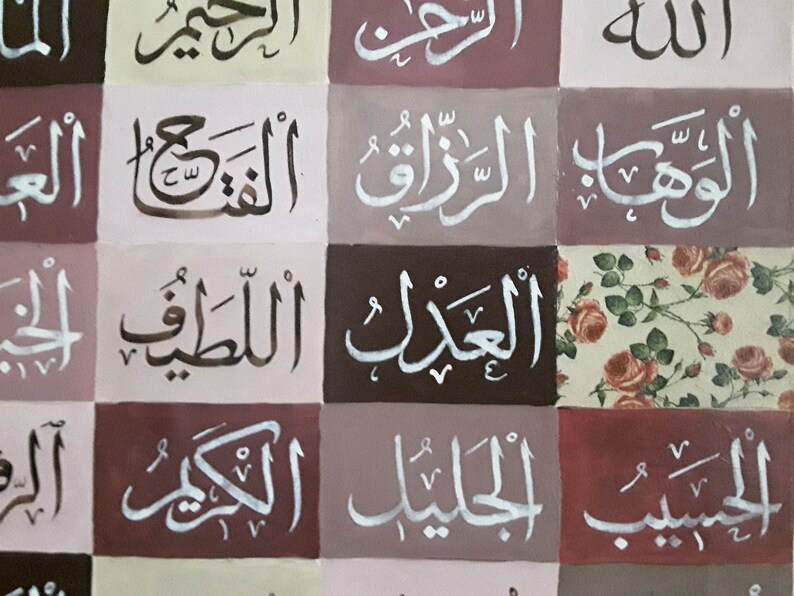 الله الرحمن الرحيم
الْوَهَّاب الرَّزَّاقُ الْفَتَّاحُ
الْعَدْلُ اللَّطِيفُ
الْحَسِيبُ الْجَلِيلُ الْكَرِيمُ